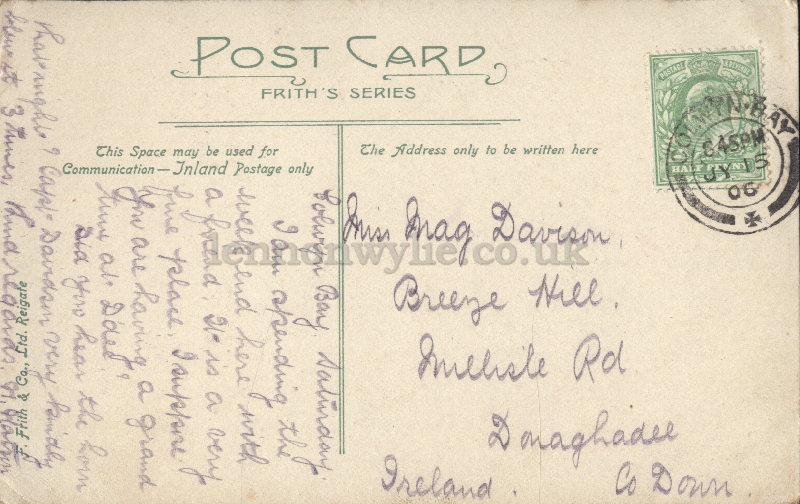 POST CARD
FRITH'S SERIES
This Space may be used for
Communication — Inland Postage only
The Address only to be written here
POSTAGE & REVENUE
HALF PENNY
COLWYN-BAY
6 45 PM
JY 15
06
Colwyn Bay. Saturday.
I am spending the
weekend here with
a friend, It is a very
fine place. I suppose
you are having a grand
time at D'dee?
Did you hear the horn
that night? Capt. Davidson very kindly
blew it 3 times. Kind regards.
Miss Mag Davison,
Breeze Hill,
Millisle Rd.
Donaghadee
Ireland. Co Down.
F. Frith & Co., Ltd. Reigate
lennonwylie.co.uk